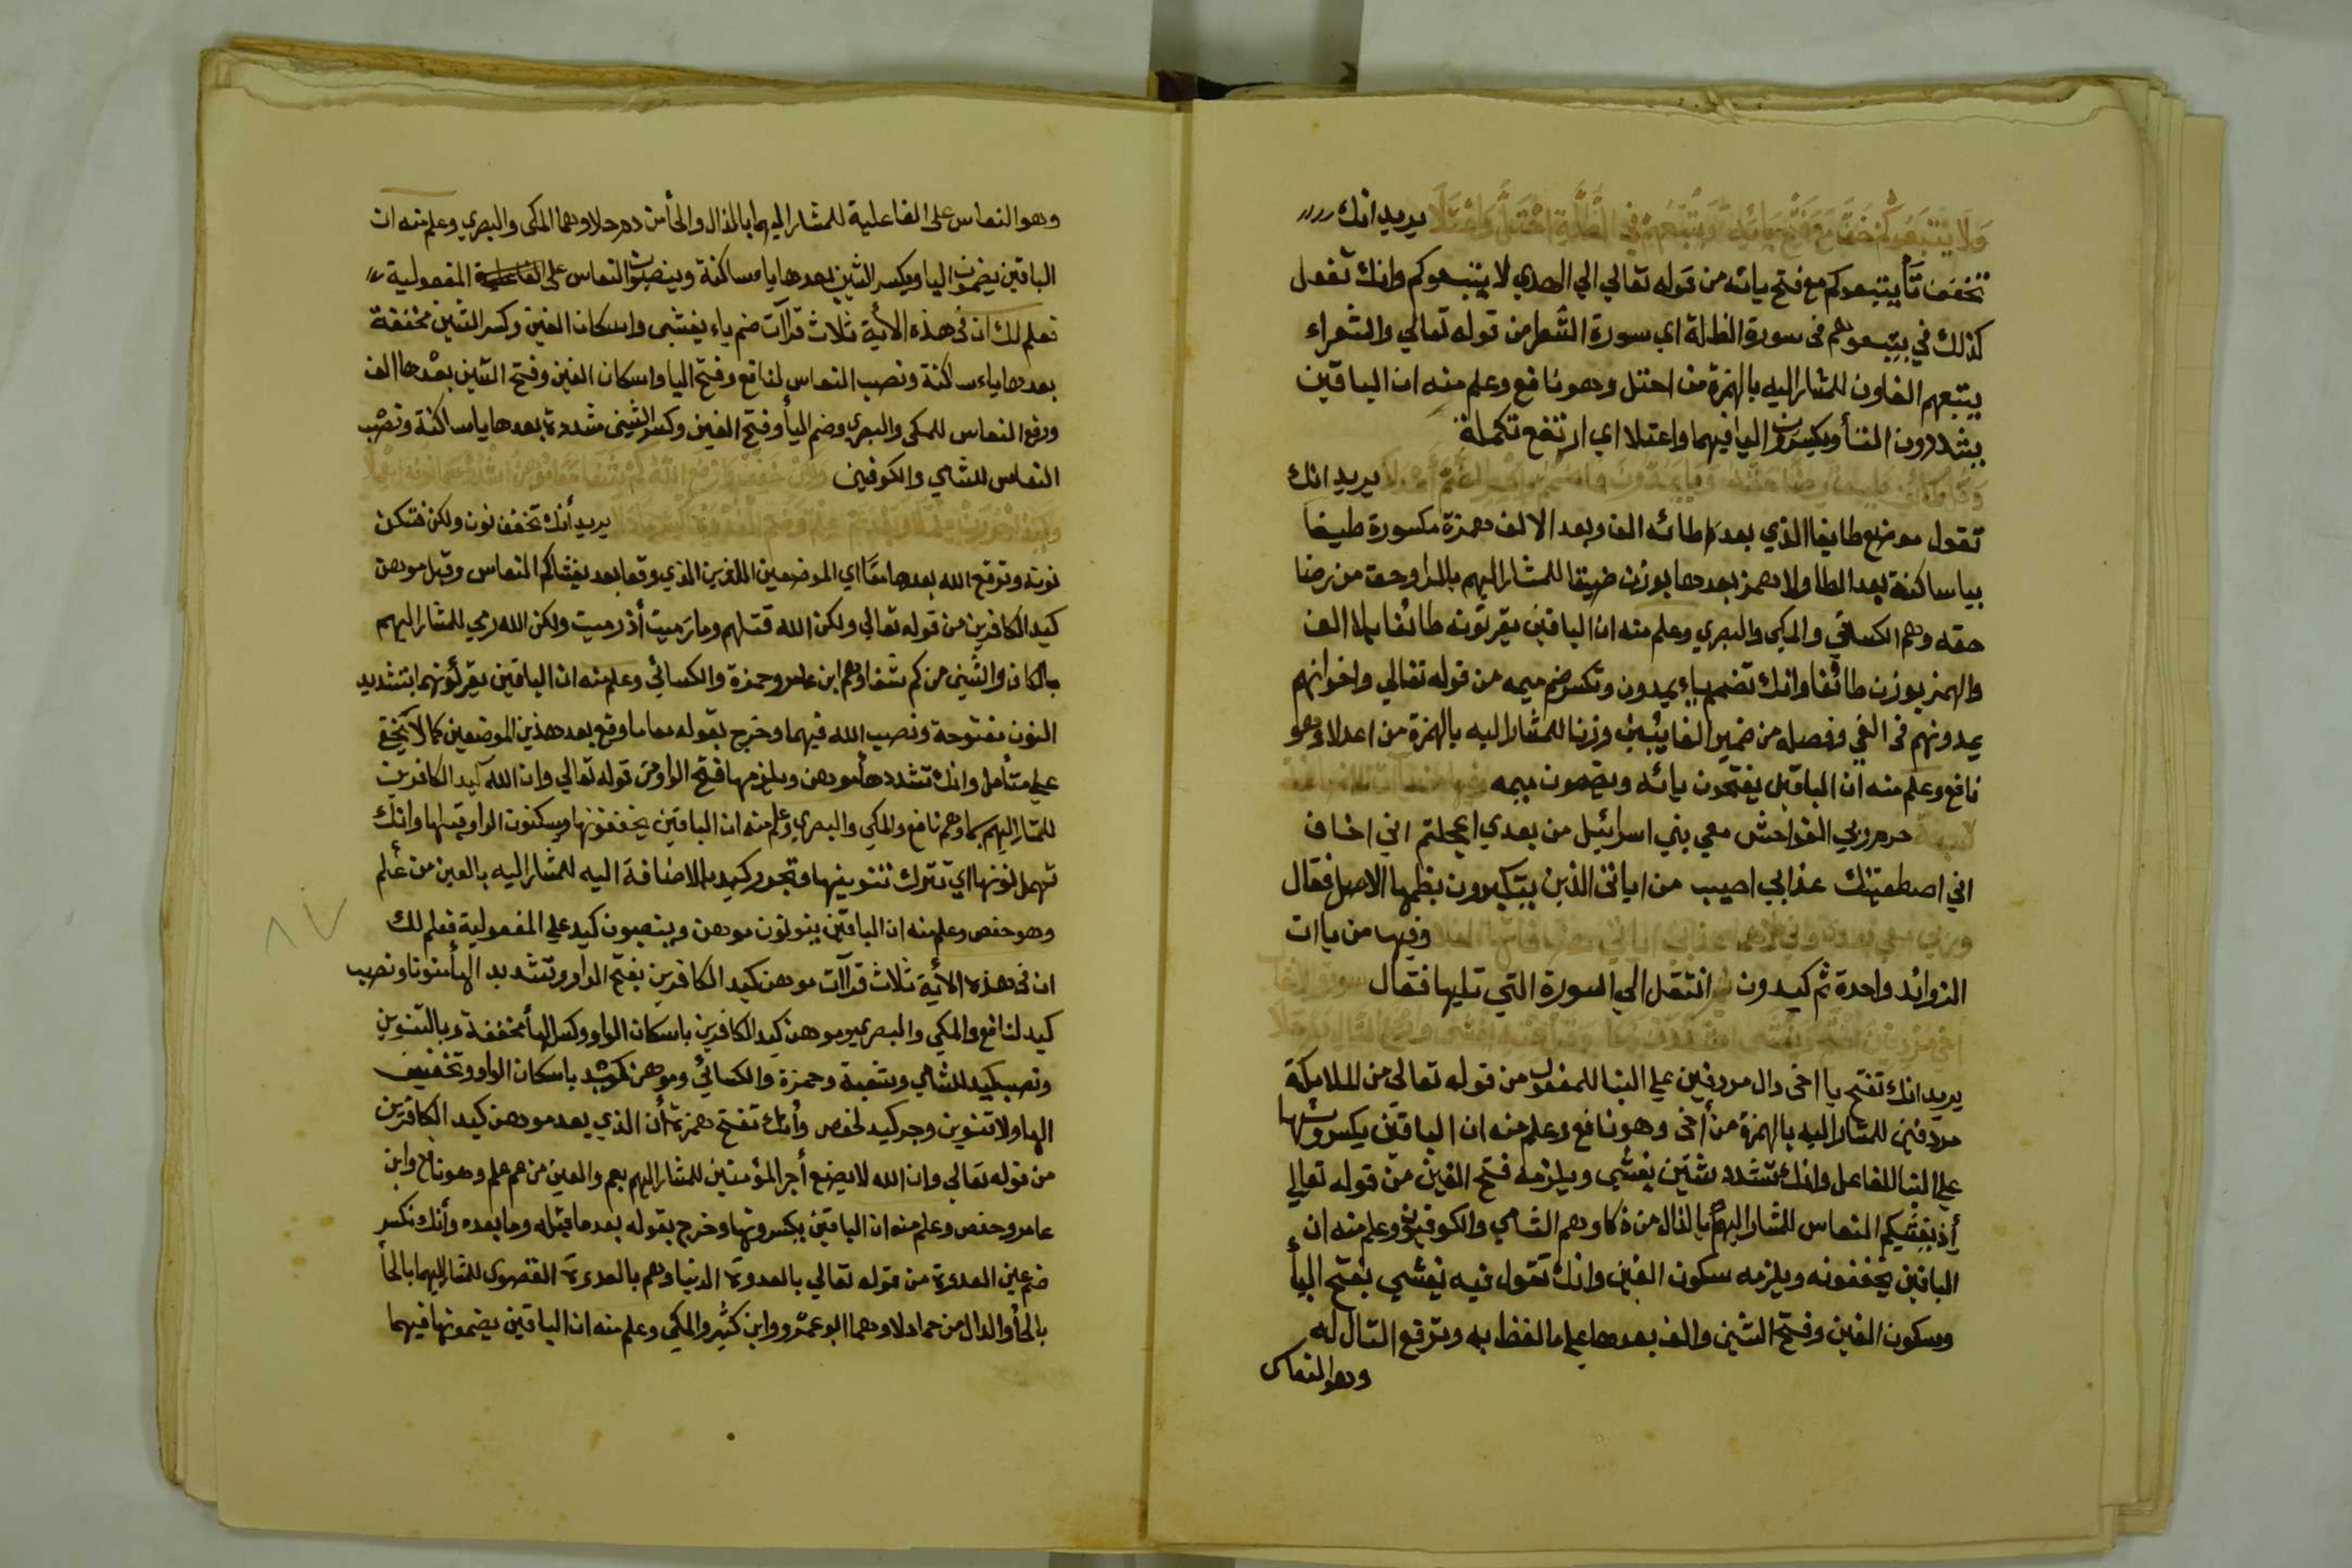 ولا يتبعوكم خف مع فتح بائه ويتبعهم في الظلة احتل واعتلا يريد انك
تخفف تأ يتبعوكم مع فتح بائه من قوله تعالي الي الهدي لا يتبعوكم وانك تفعل
كذلك في يتبعوهم في سورة الظلة اي سورة الشعرا من قوله تعالي والشعراء
يتبعهم الغاون للمشار اليه بالهمزة من احتل وهو نافع وعلم منه ان الباقين
يشددون التأ ويكسرون البا فيهما واعتلا اي ارتفع تكملة
يريد انك
تقول موضع طايفا الذي بعد طا طائه الف وبعد الالف همزة مكسورة طيفا
بيا ساكنة بعد الطا ولا همز بعدها بوزن ضيقا للمشار اليهم بالرا وحق من رضا
حقه وهم الكسائي والمكي والبصري وعلم منه ان الباقين يقرئونه طائفا بالالف
والهمز بوزن طائفا وانك تضم ياء يمدون وتكسر ضم ميمه من قوله تعالي واخوانهم
يمدونهم في الغي وفصله من ضمير الغائبين وزنا للمشار اليه بالهمزة من اعدلا وهو
نافع وعلم منه ان الباقين يفتحون يائه ويضمون ميمه
حرم ربي الفواحش معي بني اسرائيل من بعدي اعجلتم اني اخاف
اني اصطفيتك عذابي اصيب من اياتي الذين يتكبرون بظمها الاصل فقال
وربي معي بعدي واني وفيها من ياات
الزوائد واحدة ثم كيدون ثم انتقل الي السورة التي تليها فقال
يريد انك تفتح يا اخي دال مردفين علي البنا للمفعول من قوله تعالي من الملائكة
مردفين للمشار اليه بالهمزة من أخي وهو نافع وعلم منه ان الباقين يكسرونها
علي البنا للفاعل وانك تشدد شين يغشي ويلزمه فتح الغين من قوله تعالي
أذ يغشيكم النعاس للمشار اليهم بالذال من ذكا وهم الشامي والكوفيون وعلم منه ان
الباقين يخففونه ويلزمه سكون الغين وانك تقول فيه يغشي بفتح اليأ
وسكون الغين وفتح الشين والف بعدها علي ما لفظ به وترفع التال له
وهو النعاس
وهو النعاس علي الفاعلية للمشار اليهما بالذال والحأ من ده حلا وهما المكي والبصري وعلم منه ان
الباقين يضمون اليا ويكسر الشين بعدها يا ساكنة وينصبون النعاس علي المفعولية
فعلم لك ان في هذه الأية ثلاث قرآات ضم ياء يغشي واسكان الغين وكسر الشين مخففة
بعدها ياء ساكنة ونصب النعاس لنافع وفتح اليا واسكان الغين وفتح الشين بعدها الف
ورفع النعاس للمكي والبصري وضم اليأ وفتح الغين وكسر الشين مشددة بعدها يا ساكنة ونصب
النعاس للشامي والكوفيين
يريد أنك تخفف نون ولكن فتكن
نونه وترفع الله بعدها معا اي الموضعين اللذين الذي وقعا بعد يغشاكم النعاس وقبل موهن
كيد الكافرين من قوله تعالي ولكن الله قتلهم وما رميت أذ رميت ولكن الله رمي للمشار اليهم
بالكاف والشين من كم شفا وهم ابن عامر وحمزة والكسائي وعلم منه ان الباقين يقرأونهما بتشديد
النون مفتوحة ونصب الله فيهما وخرج بقوله معا ما وقع بعد هذين الموضعين كما لا يخفي
علي متأمل وانك تشدد هأ موهن ويلزمها فتح الواو من قوله تعالي وان الله كيد الكافرين
للمشار اليهم بسما وهم نافع والمكي والبصري وعلم منه ان الباقين يخففونها ويسكنون الواو قبلها وانك
تهمل نونها اي تترك تنوينها وتجرور كيد بالاضافة اليه للمشار اليه بالعين من علم
وهو حفص وعلم منه ان الباقين ينونون موهن وينصبون كيد علي المفعولية فعلم لك
ان في هذه الأية ثلاث قرآات موهن كيد الكافرين بفتح الواو وتشديد الهأ منونا ونصب
كيد لنافع والمكي والبصري وموهن كيد الكافرين باسكان الواو وكسر الهأ مخففة وبالتنوين
ونصب كيد للشامي وشعبة وحمزة والكسائي وموهن كيد باسكان الواو وتخفيف
الها ولا تنوين وجر كيد لحفص وأنك تفتح همزة أن الذي بعد موهن كيد الكافرين
من قوله تعالي وان الله لا يضيع أجر المؤمنين للمشار اليهم بعم والعين من عم علم وهو نافع وابن
عامر وحفص وعلم منه ان الباقين يكسرونها وخرج بقوله بعد ما قبله وما بعده وأنك تكسر
ضم عين العدوة من قوله تعالي بالعدوة الدنيا وهم بالعدوة القصوي للمشار اليهما بالحأ
بالحأ والدال من حما دلا وهما ابو عمرو وابن كثير والمكي وعلم منه ان الباقين يضمونها فيهما